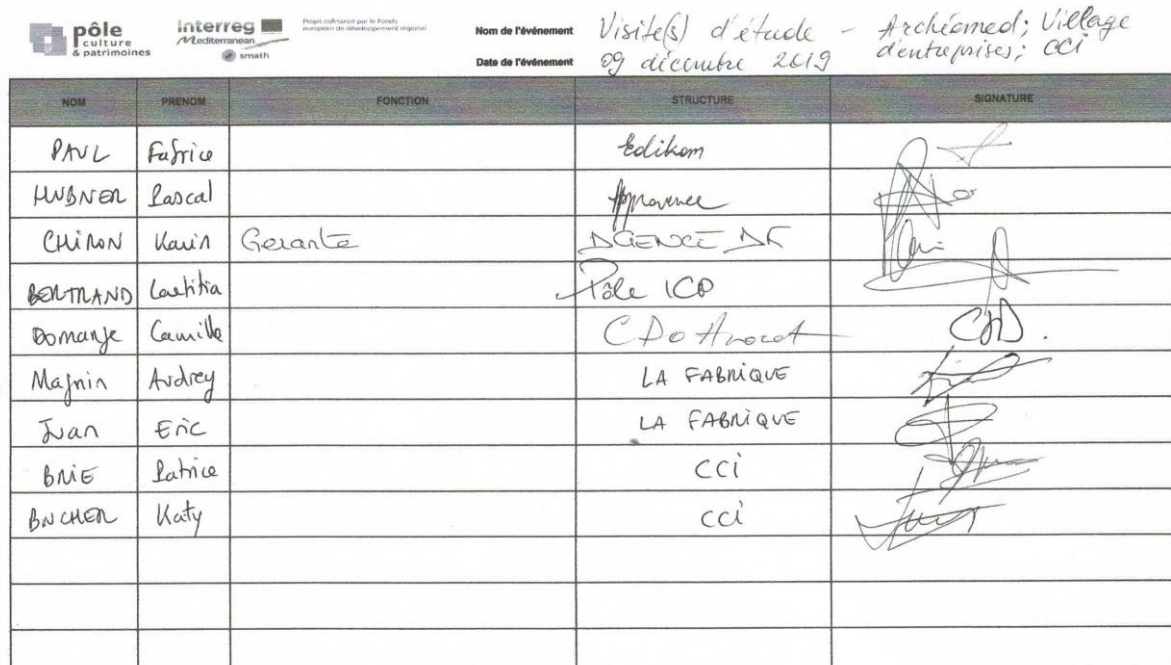 pôle
culture
& patrimoines
Interreg
Mediterranean
smath
Projet cofinancé par le Fonds
européen de développement régional
Nom de l'événement Visite(s) d'étude - Archéomed; Village
d'entreprises; CCI
Date de l'événement 09 décembre 2019
NOM PRENOM FONCTION STRUCTURE SIGNATURE
PAUL Fabrice Edikom
HUBNER Pascal
CHIRON Karin Gerante AGENCE DK
BERTRAND Laetitia Pôle ICP
Domanje Camille CDo Avocat CHD.
Magnin Audrey LA FABRIQUE
Juan Eric LA FABRIQUE
BRIE Patrice CCi
BUCHER Katy CCi